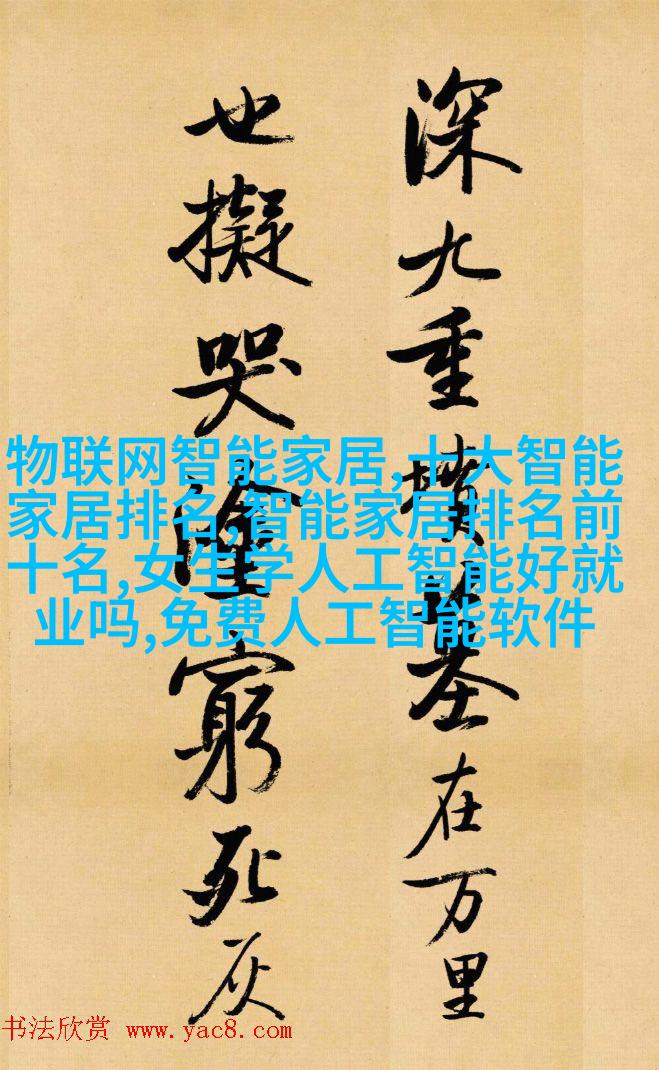 深九重墳墓在万里
也擬哭塗窮死灰
物联网智能家居,十大智能
家居排名,智能家居排名前
十名,女生学人工智能好就
业吗,免费人工智能软件
书法欣赏 www.yac8.com